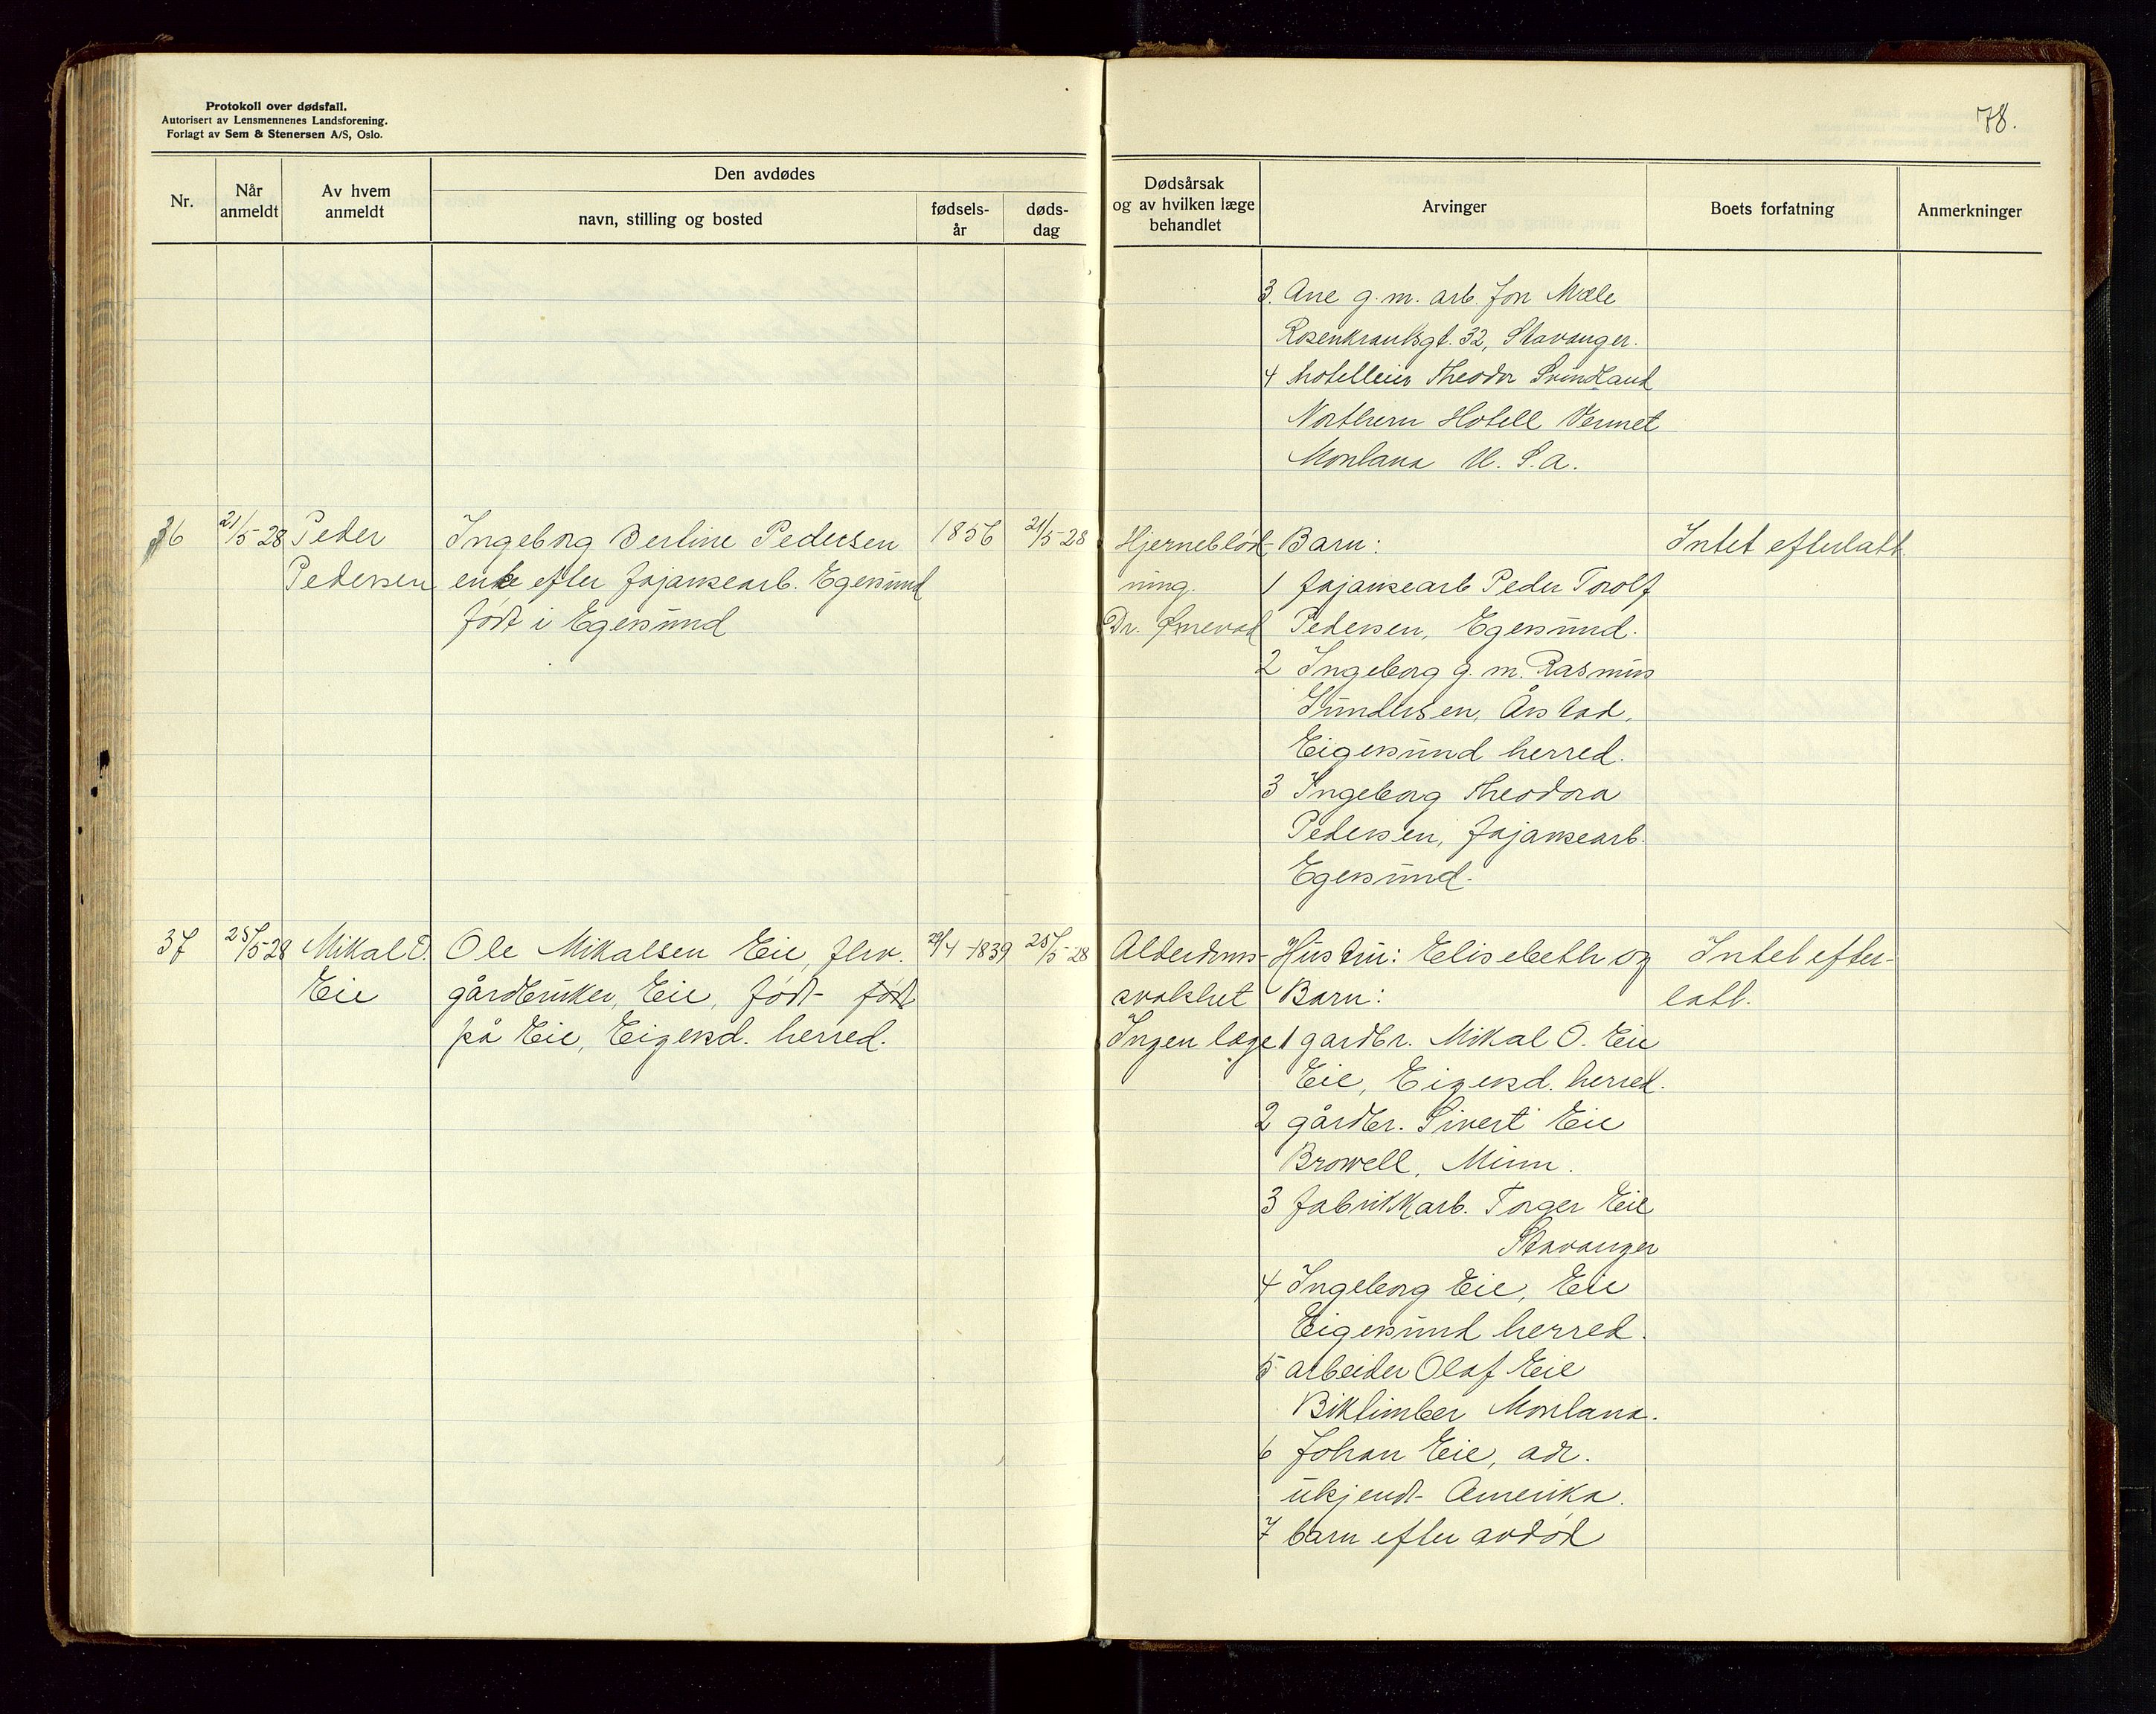 Protokoll over dødsfall.
Autorisert av Lensmennenes Landsforening.
Forlagt av Sem & Stenersen A/S, Oslo.
Nr.
Når
anmeldt
Av hvem
anmeldt
Den avdødes
navn, stilling og bosted
fødsels-
år
døds-
dag
36
21/5-28
Peder
Pedersen
Ingeborg Berline Pedersen
enke efter fajansearb. Egersund
født i Egersund
1856
21/5-28
37
25/5-28
Mikal O.
Eie
Ole Mikalsen Eie, fhv.
gårdbruker, Eie, født født
på Eie, Eigersd. herred.
29/4-1839
25/5-28
78.
Dødsårsak
og av hvilken læge
behandlet
Arvinger
Boets forfatning
Anmerkninger
3. Ane g.m. arb. Jon Mæle
Rosenkrantsgt. 32, Stavanger.
4 hotelleier Theodor Svindland
Northern Hotell
Montana U.S.A.
Hjerneblød-
ning.
Dr. Ørnevad
Barn:
1 fajansearb Peder Torolf
Pedersen, Egersund.
2 Ingeborg g.m. Rasmus
Gundersen, Årstad,
Eigersund herred.
3 Ingeborg Theodora
Pedersen, fajansearb.
Egersund.
Intet efterlatt
Alderdoms-
svakhet
Ingen læge
Hustru: Elisebeth og
Barn:
1 gardbr. Mikal O. Eie
Eie, Eigersd. herred.
2 gårdbr. Sivert Eie
Browell, Minn.
3 fabrikkarb. Torger Eie
Stavanger
4 Ingeborg Eie, Eie
Eigersund herred.
5 arbeider Olaf Eie
Biktimber Montana.
6 Johan Eie, adr.
ukjendt Amerika.
7 barn efter avdød
Intet efter-
latt.